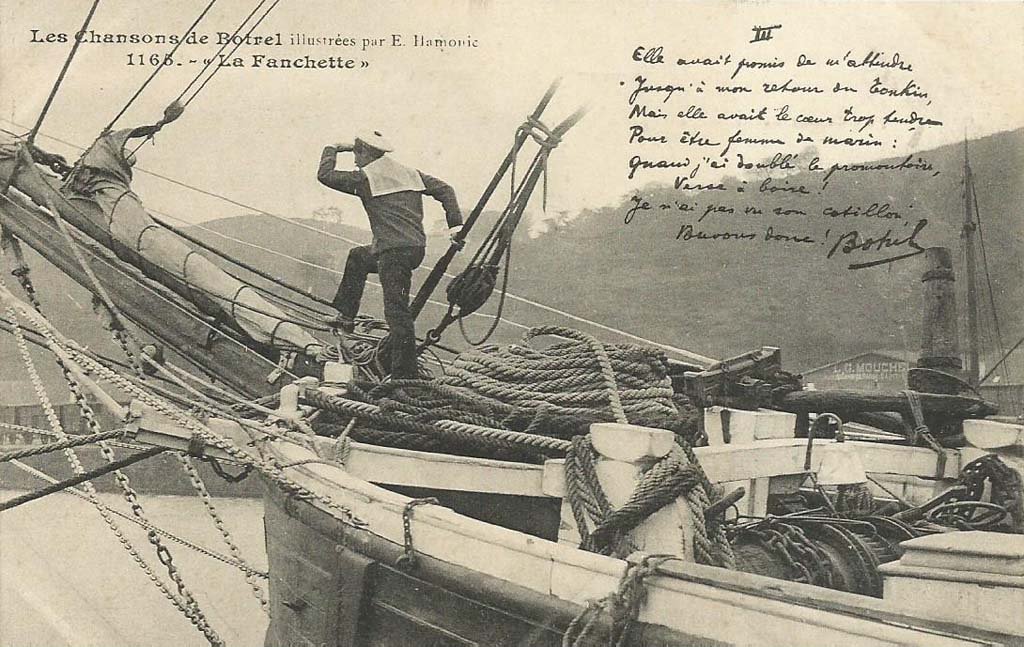 Les Chansons de Botrel illustrées par E. Hamonic
1166. - « La Fanchette »
III
Elle avait promis de m'attendre
Jusqu'à mon retour du Tonkin,
Mais elle avait le cœur trop tendre
Pour être femme de marin :
Quand j'ai doublé le promontoire,
Verse à boire !
Je n'ai pas vu son cotillon
Buvons donc ! Botrel
MOUCHE